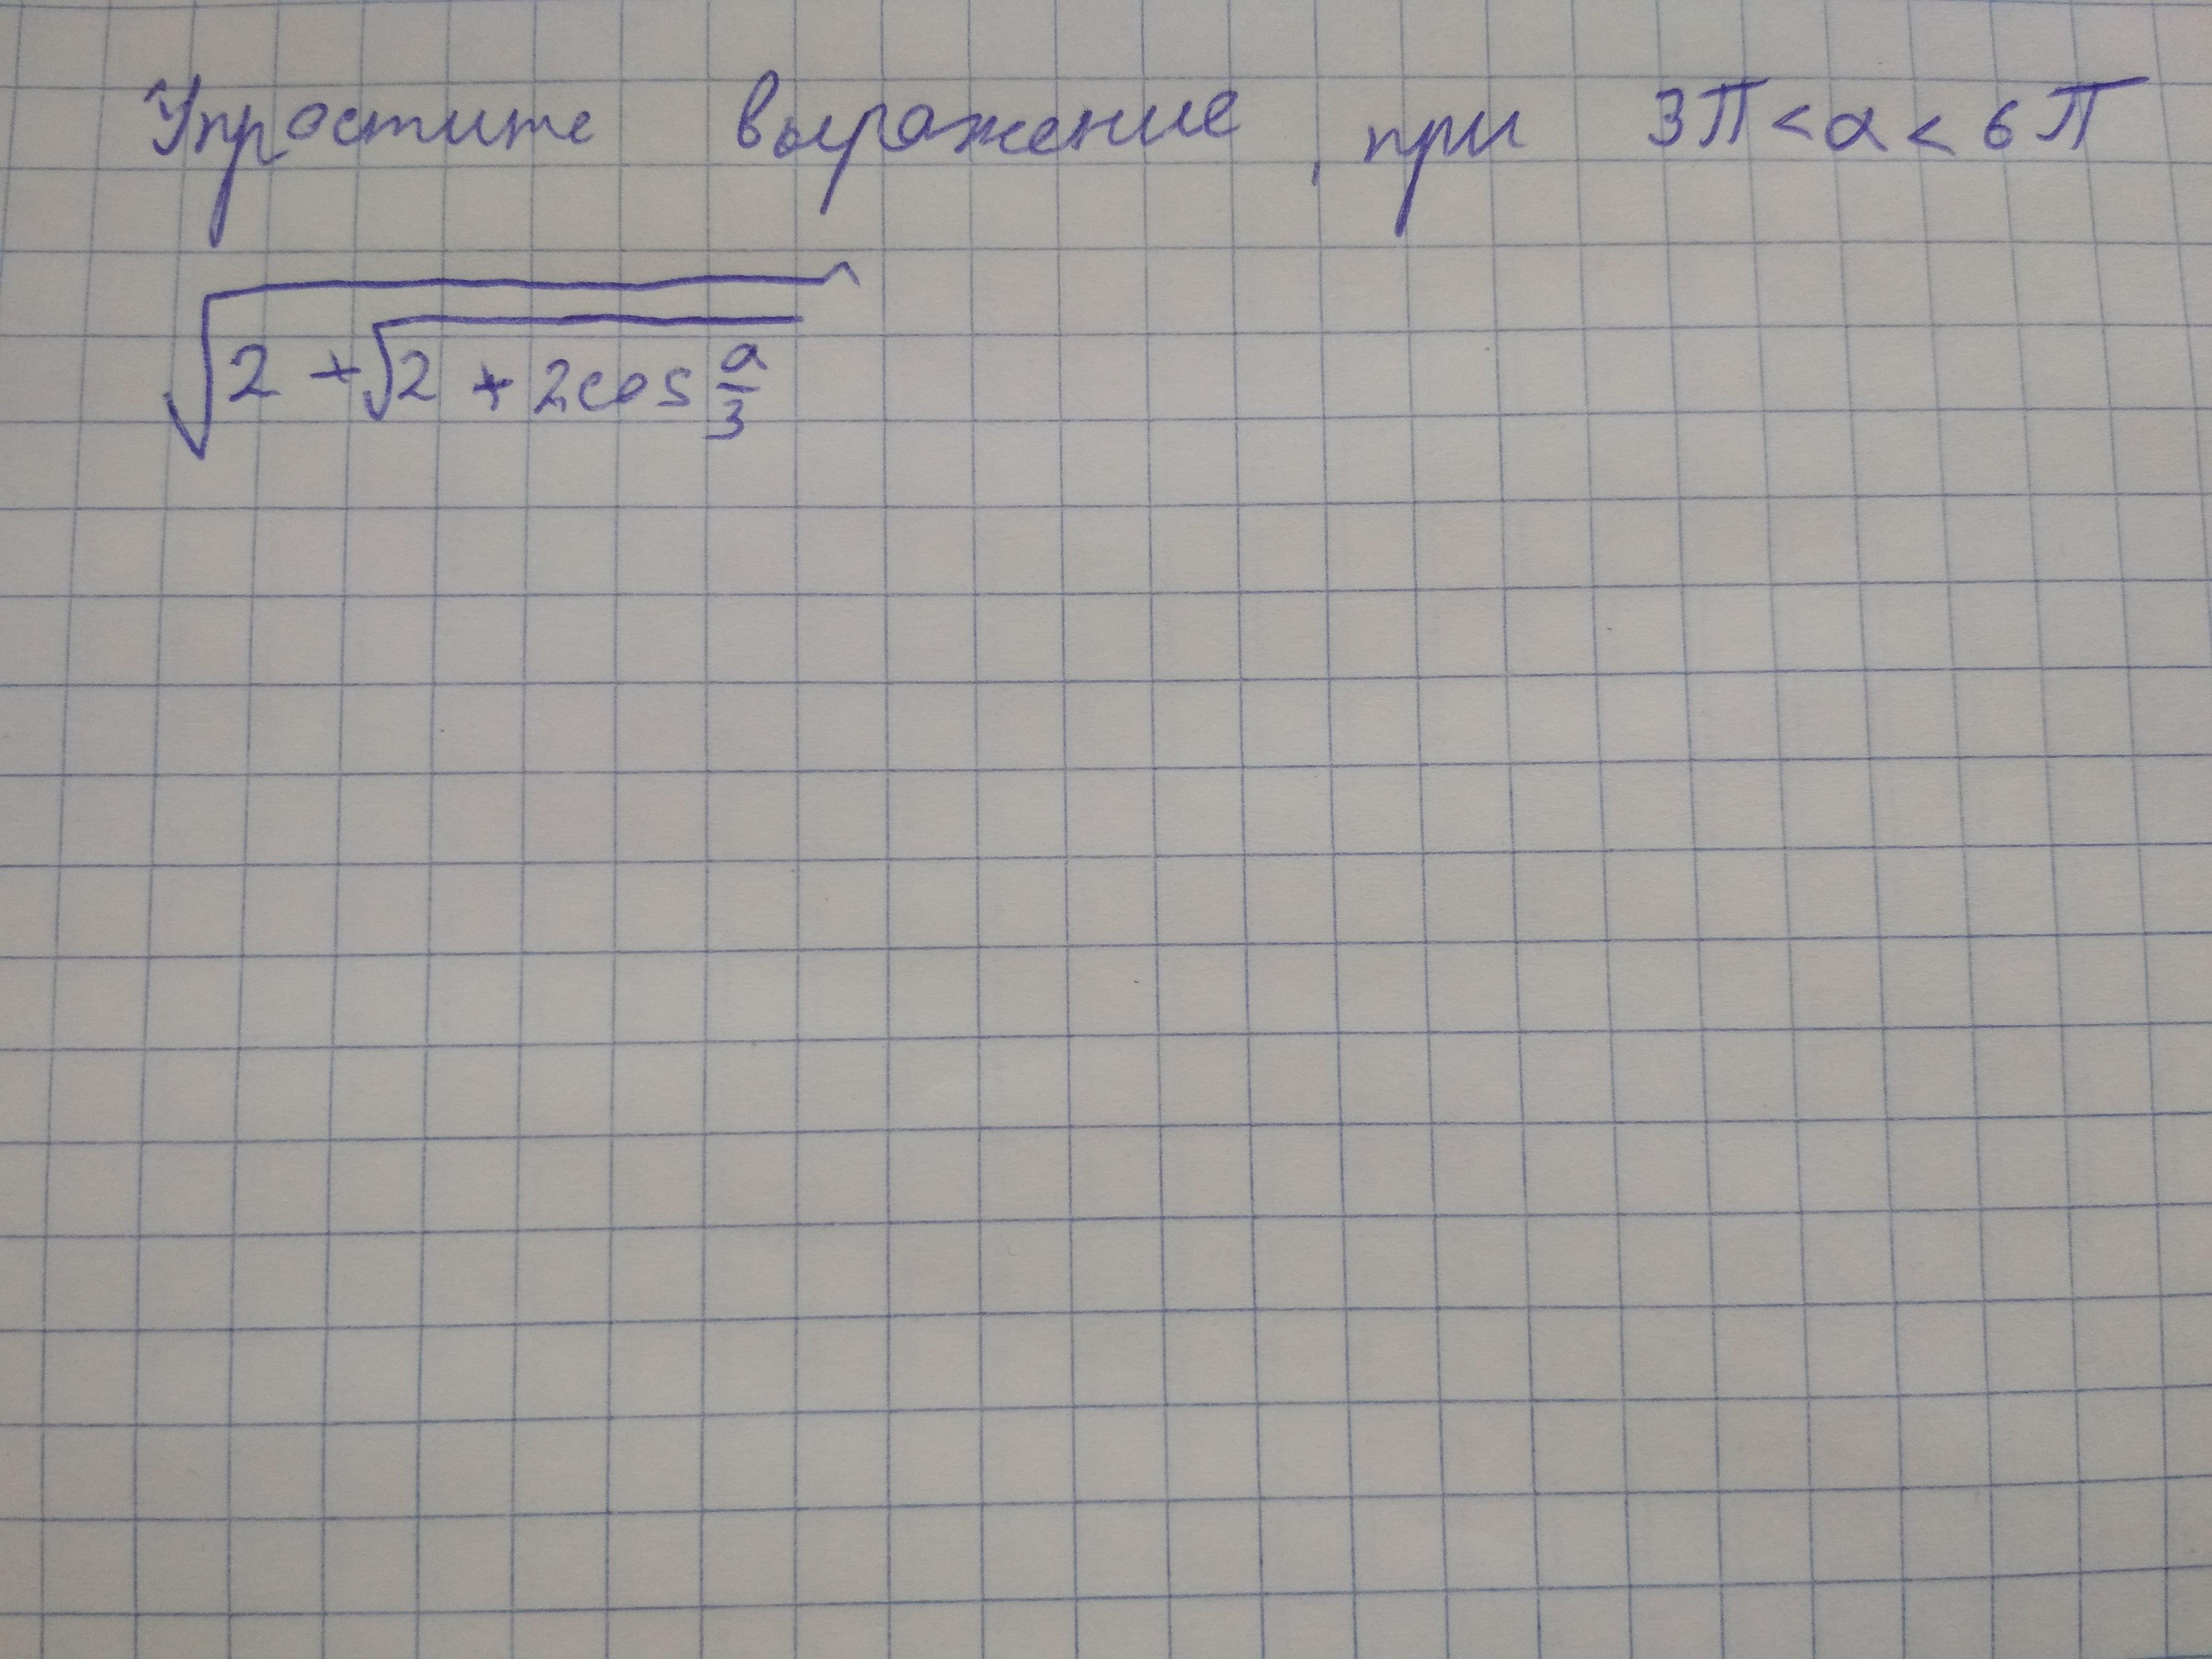 Упростите выражение, при 3π < α < 6π
√(2 + √(2 + 2cos a/3))